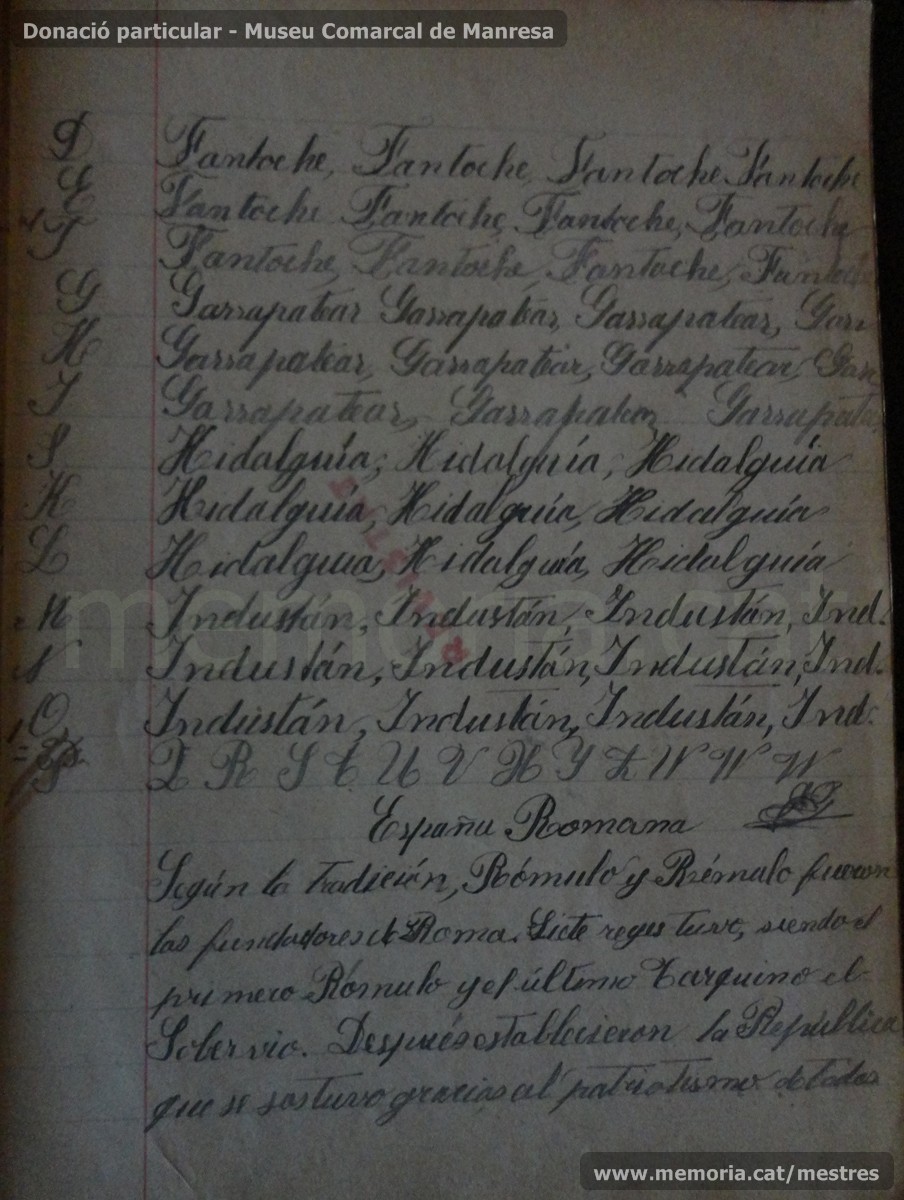 Donació particular - Museu Comarcal de Manresa
D Fantoche, Fantoche, Fantoche Fantoche
E Fantoche Fantoche, Fantoche, Fantoche
F Fantoche, Fantoche, Fantoche, Fantoche
G Garrapatear Garrapatear, Garrapatear, Garr
H Garrapatear, Garrapatear, Garrapatear, Garr
I Garrapatear, Garrapatear Garrapatea
J Hidalguía, Hidalguía, Hidalguía
K Hidalguía, Hidalguía, Hidalguía
L Hidalguia, Hidalguía, Hidalguía
M Industán, Industán, Industán, Ind.
N Industán, Industán, Industán, Ind.
O Industán, Industán, Industán, Ind.
P Q R S T U V X Y Z W W W
España Romana
Según la tradición, Rómulo y Rémulo fueron
los fundadores de Roma. Siete reyes tuvo, siendo el
primero Rómulo y el último Tarquino el
Sobervio. Después establecieron la República
que se sostuvo gracias al patriotismo de todos
memoria.cat
www.memoria.cat/mestres